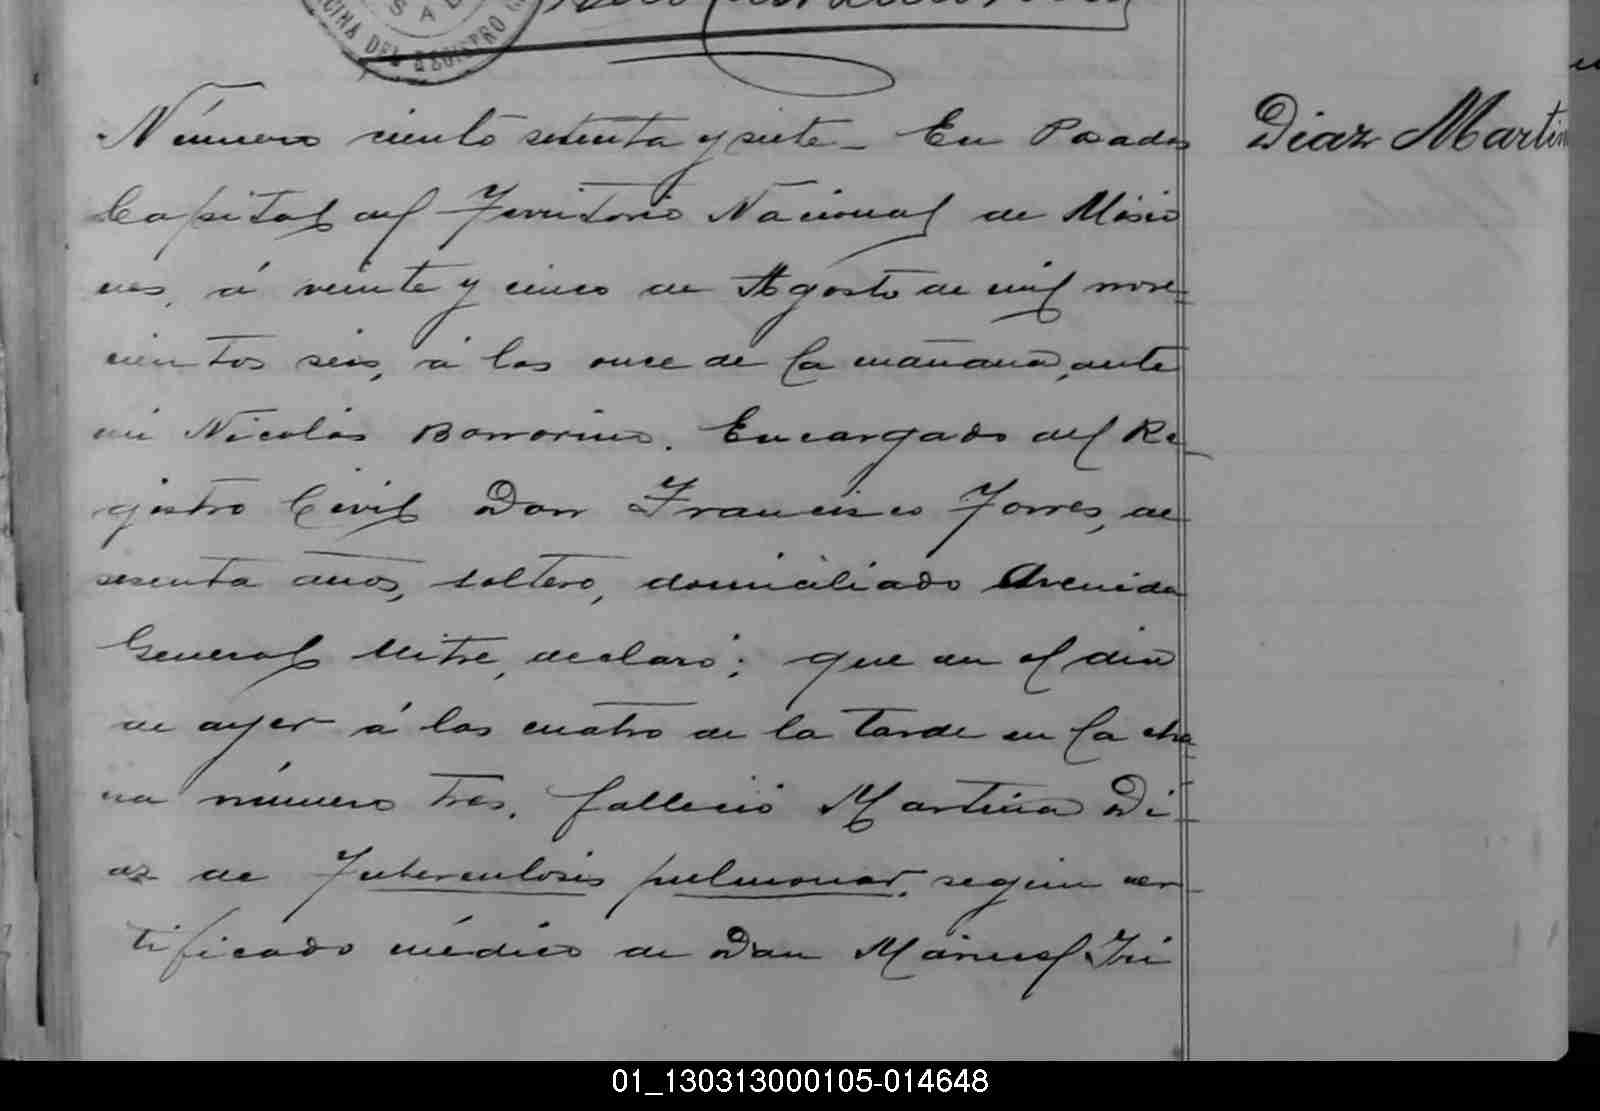 CINA DEL REGISTRO
SAD
Número ciento setenta y siete_ En Posadas
Capital del Territorio Nacional de Misio
nes, á veinte y cinco de Agosto de mil nove=
cientos seis, á las once de la mañana, ante
mi Nicolás Borrorino. Encargado del Re_
gistro Civil Don Francisco Torres, de
sesenta años, soltero, domiciliado Avenida
General Mitre, declaró: que en el dia
de ayer á las cuatro de la tarde en la cha=
cra número tres, falleció Martina Di=
az de Tuberculosis pulmonar, según cer_
tificado médico de Don Manuel
Diaz Martin
01_130313000105-014648